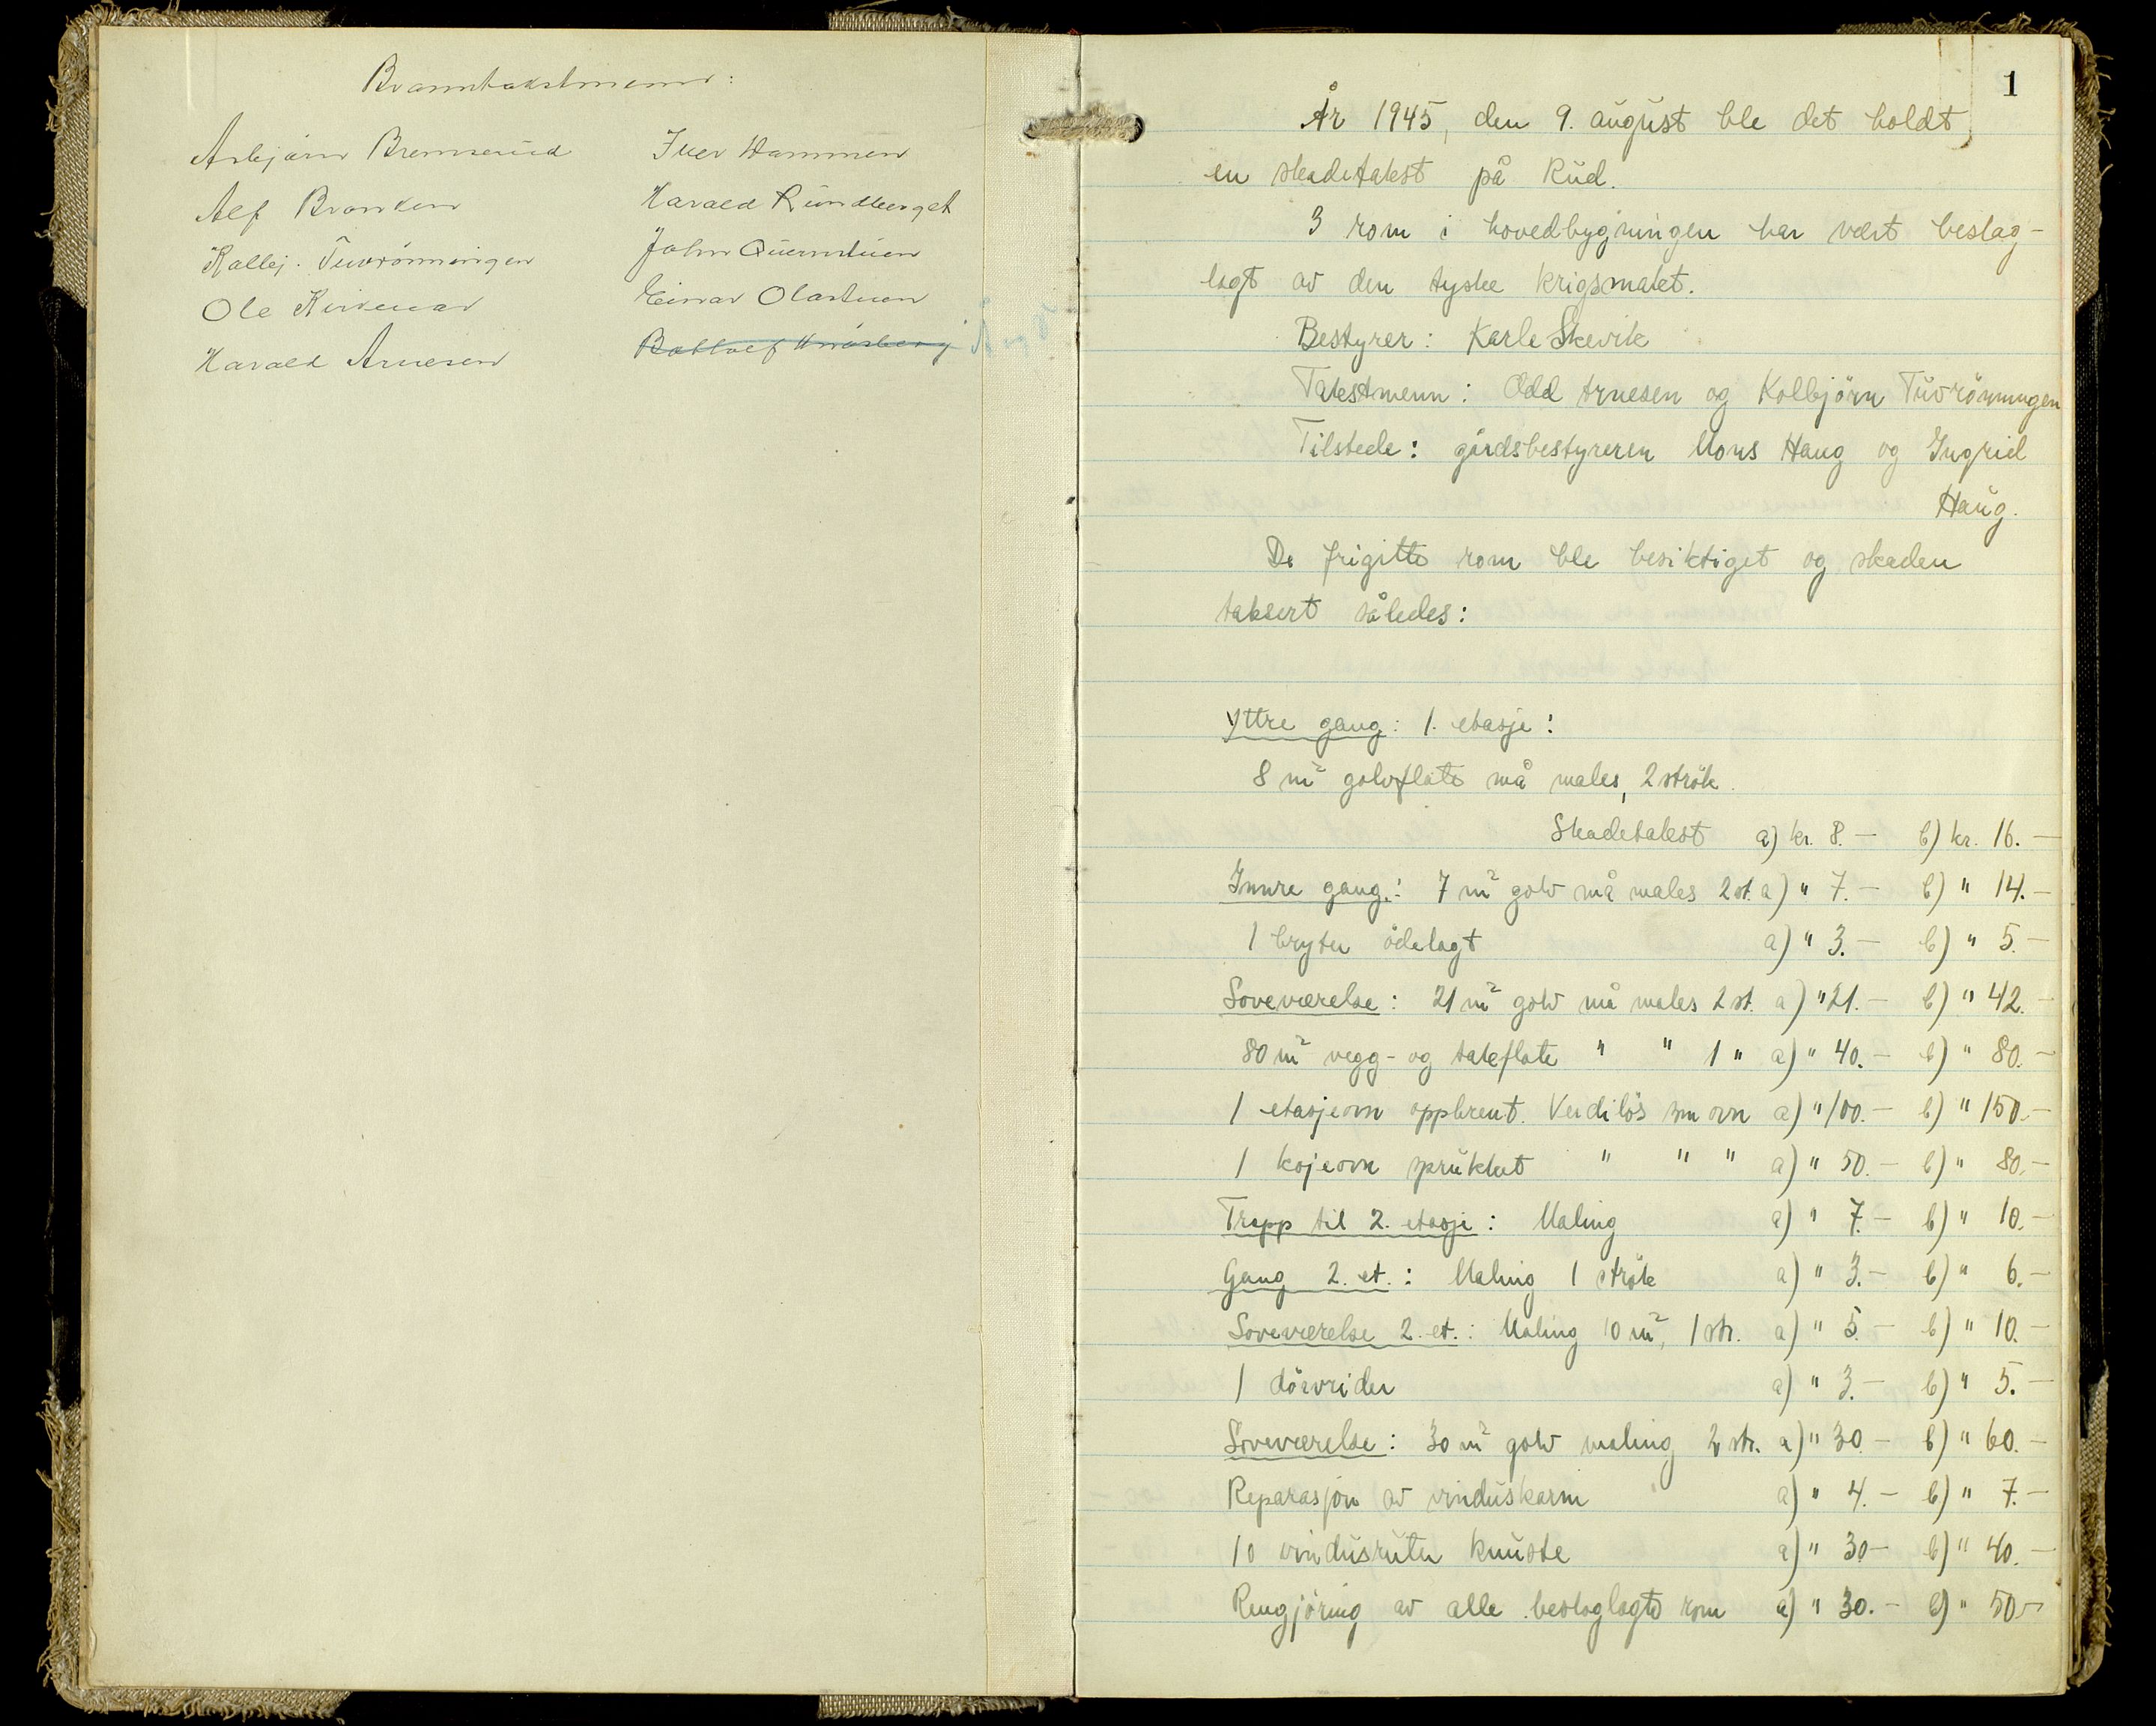 Branntakstmenn:
Asbjørn Bremserud
Alf Branden
Kolbj. Tuvrönningen
Ole Kirkerud
Harald Arnesen
Iver Hammen
Harald Rundberget
John Quernstuen
Einar Olastuen
1
År 1945, den 9. august ble det holdt
en skadetakst på Rud.
3 rom i hovedbygningen har vært beslag-
lagt av den tyske krigsmakt.
Bestyrer: Karle Skevik
Takstmenn: Odd Arnesen og Kolbjörn Tuvrönningen
Tilstede: gårdsbestyreren Mons Haug og Ingrid
Haug.
De frigitte rom ble besiktiget og skaden
taksert således:
Yttre gang: 1. etasje:
8 m² golvflate må males, 2 strök.
Skadetakst a) kr. 8.— b) kr. 16.—
Innre gang: 7 m² golv må males 2 st. a) " 7.— b) " 14.—
1 bryter ödelagt a) " 3.— b) " 5.—
Soveværelse: 21 m² golv må males 2 st. a) " 21.— b) " 42.—
80 m² vegg- og takflate " " 1 " a) " 40.— b) " 80.—
1 etasjeovn oppbrent. Verdilös som ovn a) " 100.— b) " 150.—
1 kojeovn sprukket " " " a) " 50.— b) " 80.—
Trapp til 2. etasje: Maling a) " 7.— b) " 10.—
Gang 2. et.: Maling 1 strök a) " 3.— b) " 6.—
Soveværelse 2. et.: Maling 10 m², 1 str. a) " 5.— b) " 10.—
1 dörvrider a) " 3.— b) " 5.—
Soveværelse: 30 m² golv maling 2 str. a) " 30.— b) " 60.—
Reparasjon av vinduskarm a) " 4.— b) " 7.—
10 vindusruter knuste a) " 30.— b) " 40.—
Rengjöring av alle beslaglagte rom a) " 30.— b) " 50.—